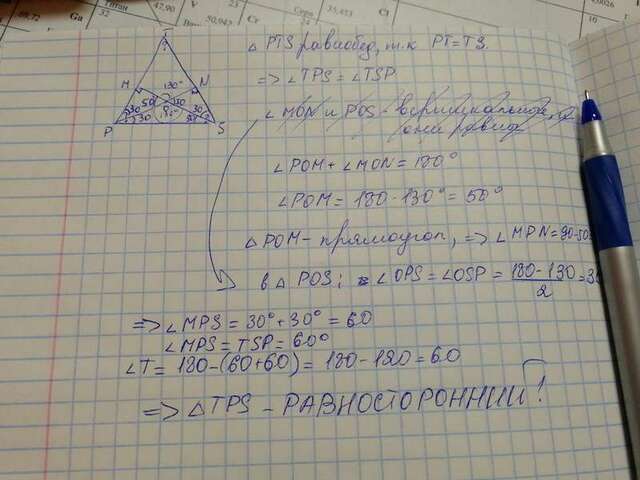 42,90 V 23 Cr 35,453 Cl
Ga 32 50,942 24 10
△ PTS равнобед, т.к PT=TS.
=> ∠TPS = ∠TSP
∠ MON и POS - вертикальные, =>
они равны
∠POM + ∠MON = 180°
∠POM = 180 - 130° = 50°
△ POM - прямоугол, => ∠MPN = 90-50
в △ POS; ∠OPS = ∠OSP = (180-130)/2 = 3
=> ∠MPS = 30° + 30° = 60
∠MPS = TSP = 60°
∠T = 180 - (60+60) = 180 - 120 = 60
=> △TPS - РАВНОСТОРОННИЙ!
T
M 130° N
50
30 30
30
P S